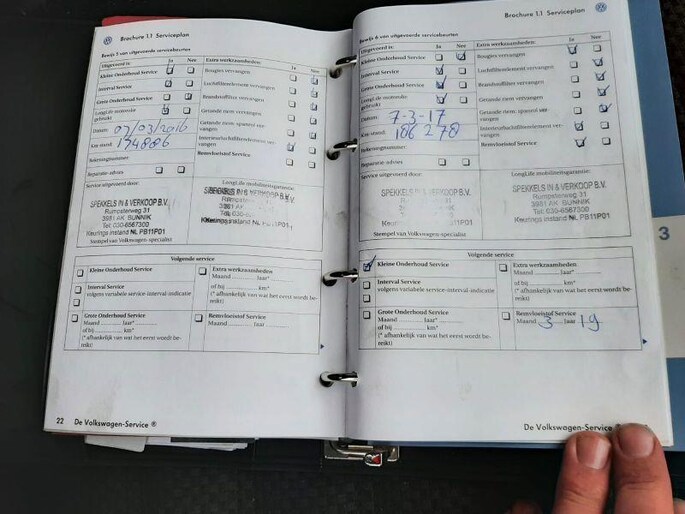 Brochure 1.1 Serviceplan
Bewijs 5 van uitgevoerde servicebeurten
Uitgevoerd is: Ja Nee
Kleine Onderhoud Service
Interval Service
Grote Onderhoud Service
LongLife motorolie gebruikt
Datum: 07/03/2016
Km-stand: 174886
Tekeningnummer:
Reparatie-advies
Extra werkzaamheden: Ja Nee
Bougies vervangen
Luchtfilterelement vervangen
Brandstoffilter vervangen
Getande riem vervangen
Getande riem, spanrol vervangen
Interieurluchtfilterelement vervangen
Remvloeistof Service
Service uitgevoerd door:
SPEKKELS IN & VERKOOP B.V.
Rumpsterweg 31
3981 AK BUNNIK
Tel: 030-6567300
Keurings instand NL PB11P01
Stempel van Volkswagen-specialist
LongLife mobiliteitsgarantie:
SPEKKELS IN & VERKOOP B.V.
Keurings instand NL PB11P01
Volgende service
Kleine Onderhoud Service
Interval Service
volgens variabele service-interval-indicatie
Grote Onderhoud Service
Maand ........ jaar* ........
of bij ........ km*
(* afhankelijk van wat het eerst wordt bereikt)
Extra werkzaamheden
Maand ........ jaar* ........
of bij ........ km*
(* afhankelijk van wat het eerst wordt bereikt)
Remvloeistof Service
Maand ........ jaar ........
22 De Volkswagen-Service ®
Brochure 1.1 Serviceplan
Bewijs 6 van uitgevoerde servicebeurten
Uitgevoerd is: Ja Nee
Kleine Onderhoud Service
Interval Service
Grote Onderhoud Service
LongLife motorolie gebruikt
Datum: 7-3-17
Km-stand: 186278
Tekeningnummer:
Reparatie-advies
Extra werkzaamheden: Ja Nee
Bougies vervangen
Luchtfilterelement vervangen
Brandstoffilter vervangen
Getande riem vervangen
Getande riem, spanrol vervangen
Interieurluchtfilterelement vervangen
Remvloeistof Service
Service uitgevoerd door:
SPEKKELS IN & VERKOOP B.V.
Rumpsterweg 31
3981 AK BUNNIK
Tel: 030-6567300
Keurings instand NL PB11P01
Stempel van Volkswagen-specialist
LongLife mobiliteitsgarantie:
SPEKKELS IN & VERKOOP B.V.
Rumpsterweg 31
3981 AK BUNNIK
Tel: 030-6567300
Keurings instand NL PB11P01
Volgende service
Kleine Onderhoud Service
Interval Service
volgens variabele service-interval-indicatie
Grote Onderhoud Service
Maand ........ jaar* ........
of bij ........ km*
(* afhankelijk van wat het eerst wordt bereikt)
Extra werkzaamheden
Maand ........ jaar* ........
of bij ........ km*
(* afhankelijk van wat het eerst wordt bereikt)
Remvloeistof Service
Maand 3 jaar 19
De Volkswagen-Service ®
3